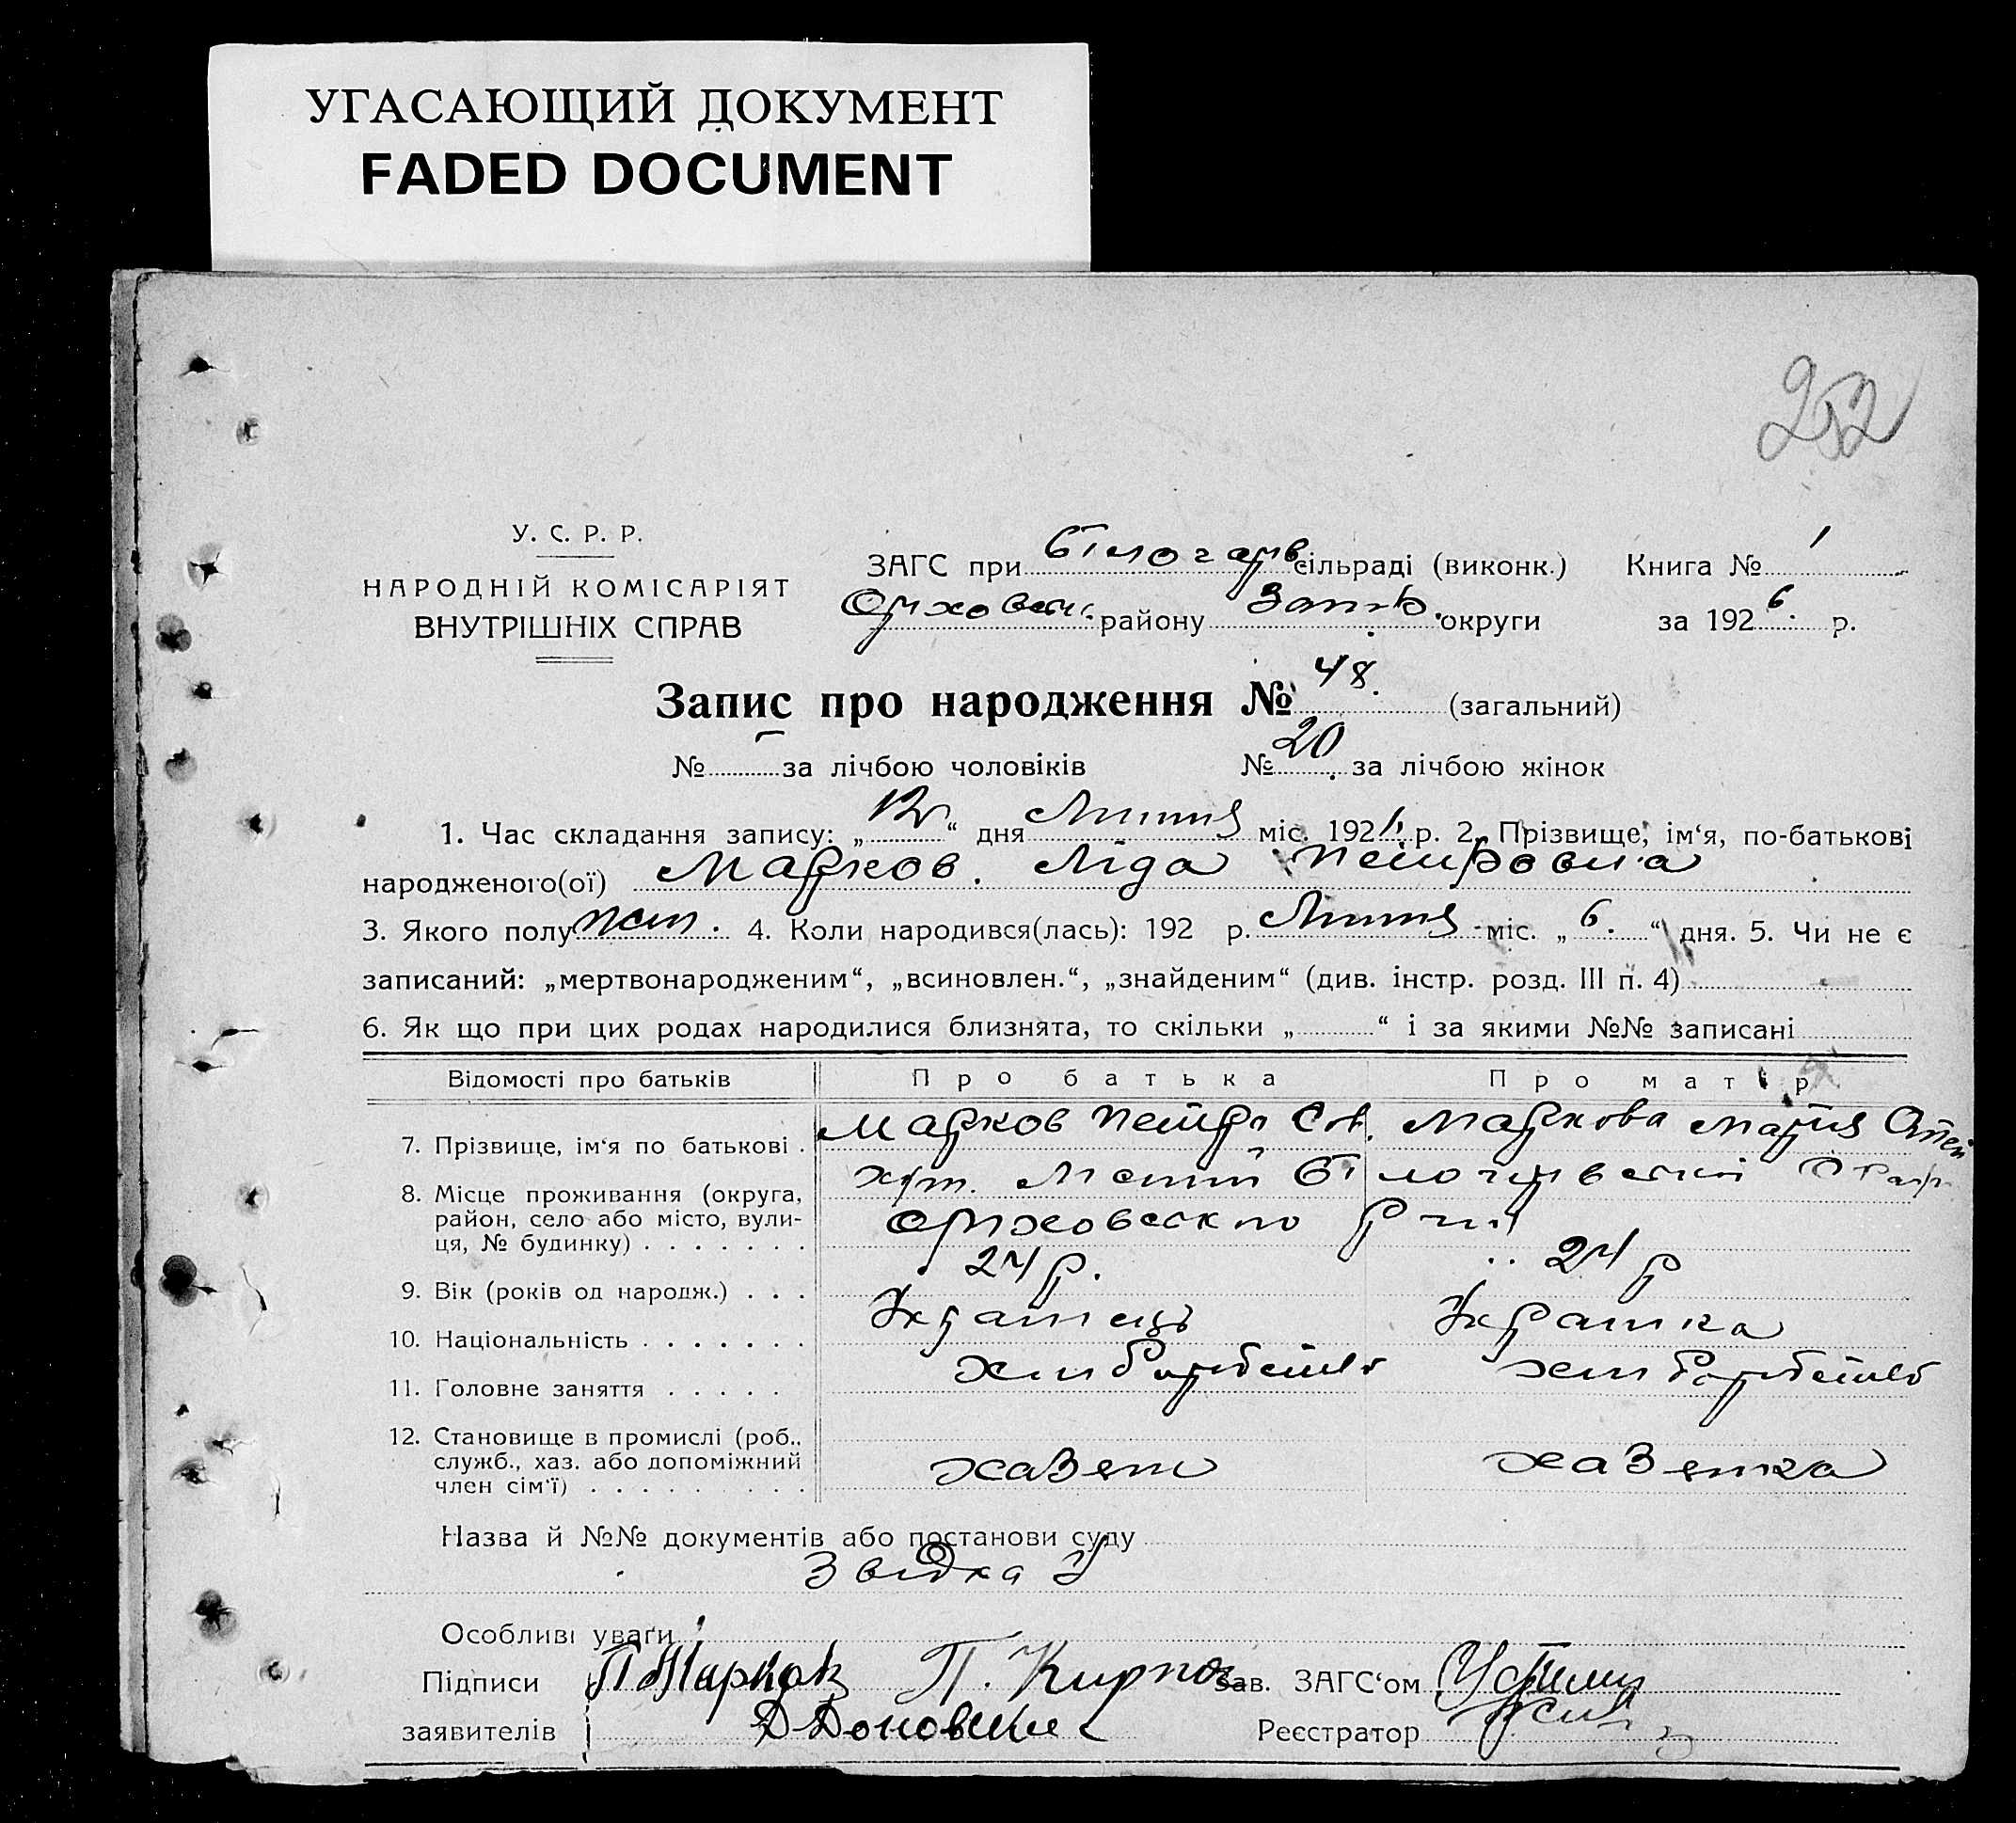 УГАСАЮЩИЙ ДОКУМЕНТ
FADED DOCUMENT
252
У. С. Р. Р.
НАРОДНІЙ КОМІСАРІЯТ
ВНУТРІШНІХ СПРАВ
ЗАГС при Білогорів сільраді (виконк.) Книга № 1
Оріховськ. району Запор. округи за 1926 р.
Запис про народження № 48. (загальний)
№ – за лічбою чоловіків № 20. за лічбою жінок
1. Час складання запису: „12“ дня Липня міс. 192 р. 2. Прізвище, ім‘я, по-батькові
народженого(ої) Марков. Ліда Петровна
3. Якого полу жін. 4. Коли народився(лась): 192 р. Липня міс. „6.“ дня. 5. Чи не є
записаний: „мертвонародженим“, „всиновлен.“, „знайденим“ (див. інстр. розд. III п. 4)
6. Як що при цих родах народилися близнята, то скільки „ “ і за якими №№ записані
Відомості про батьків Про батька Про матір
7. Прізвище, ім‘я по батькові . Марков Петро Сав. Маркова Марія
8. Місце проживання (округа,
район, село або місто, вули-
ця, № будинку) . . . . . . . Оріховського
9. Вік (років од народж.) . . . 24 р. 24 р
10. Національність . . . . . . . Українець Українка
11. Головне заняття . . . . . хліборобство хліборобство
12. Становище в промислі (роб.,
служб., хаз. або допоміжний
член сім‘ї) . . . . . . . . . хазяїн хазяїнка
Назва й №№ документів або постанови суду
Звідка
Особливі уваги
Підписи П Марков П. Кирпа Зав. ЗАГС‘ом
заявителів Реєстратор